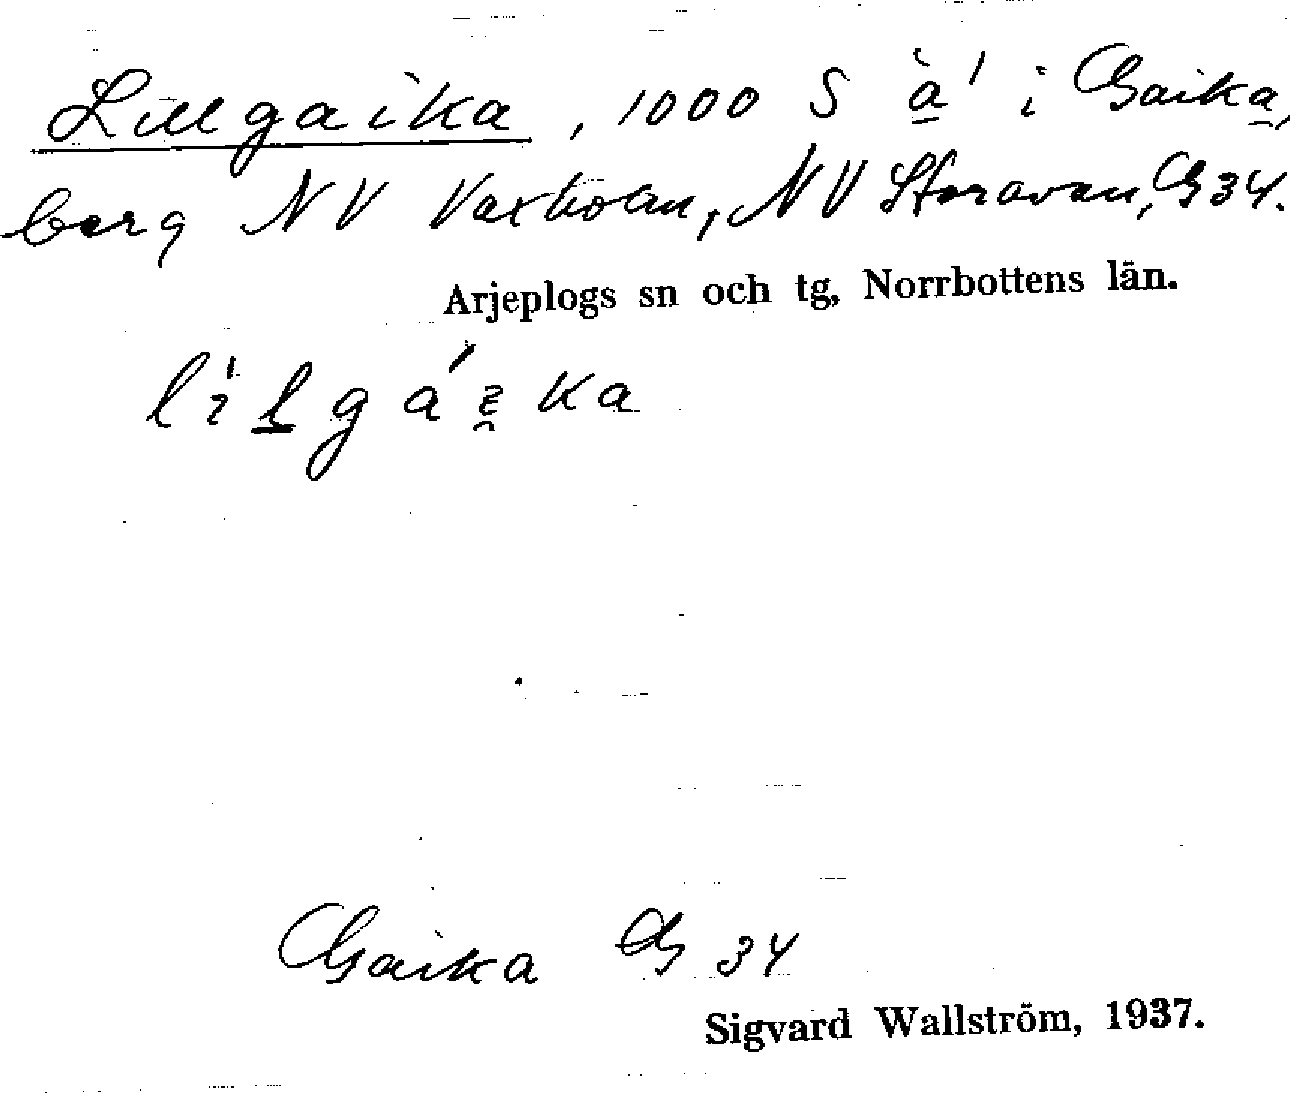 Lillgaika, 1000 S à' i Gaika,
berg NV Vaxholm, NV Storavan, G 34.
Arjeplogs sn och tg, Norrbottens län.
Gaika G 34
Sigvard Wallström, 1937.